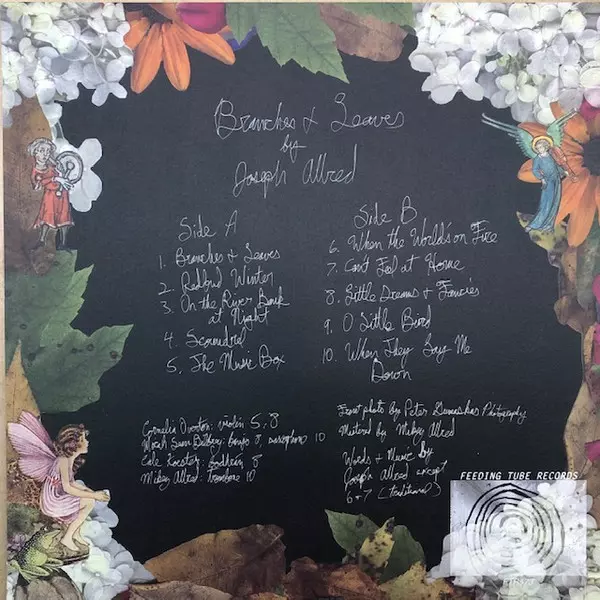 Branches & Leaves
by
Joseph Allred
Side A
1. Branches & Leaves
2. Redbud Winter
3. On the River Bank
at Night
4. Scoundrel
5. The Music Box
Side B
6. When the World's on Fire
7. Can't Feel at Home
8. Little Dreams & Fancies
9. O Little Bird
10. When They Lay Me
Down
Cornelia Overton: violin 5, 8
Micah Sean : bongo 8, saxophone 10
Cale : bodhrán 8
Mikey Allred: trombone 10
Front photo by Peter Photography
Mastered by Mikey Allred
Words & Music by
Joseph Allred except
6 & 7 (traditional)
FEEDING TUBE RECORDS